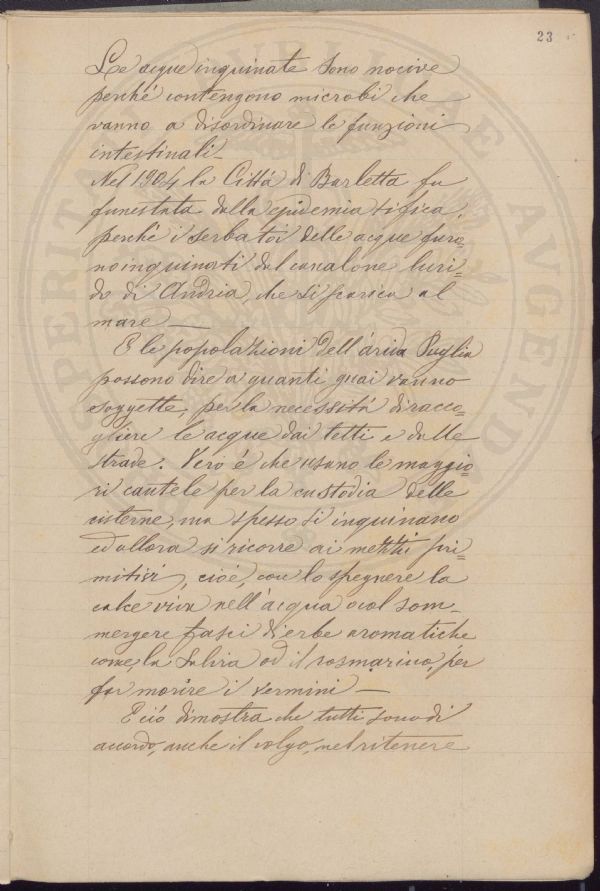 23
Le acque inquinate sono nocive
perché contengono microbi che
vanno a disordinare le funzioni
intestinali_
Nel 1904 la Cittá di Barletta fu
funestata dalla epidemia tifica,
perché i serbatoi delle acque furo=
no inquinati dal canalone luri=
do di Andria, che si scarica al
mare —
E le popolazioni dell'árida Puglia
possono dire a quanti guai vanno
soggette, per la necessitá di racco=
gliere le acque dai tetti e dalle
strade. Vero é che usano le maggio=
ri cautele per la custodia delle
cisterne, ma spesso si inquinano
ed allora si ricorre ai mezzi pri=
mitivi, cioé, con lo spegnere la
calce viva nell'acqua o col som-
mergere fasci di erbe aromatiche
come, la salvia od il rosmarino, per
far morire i vermini —
E ció dimostra che tutti sono di
accordo, anche il volgo, nel ritenere